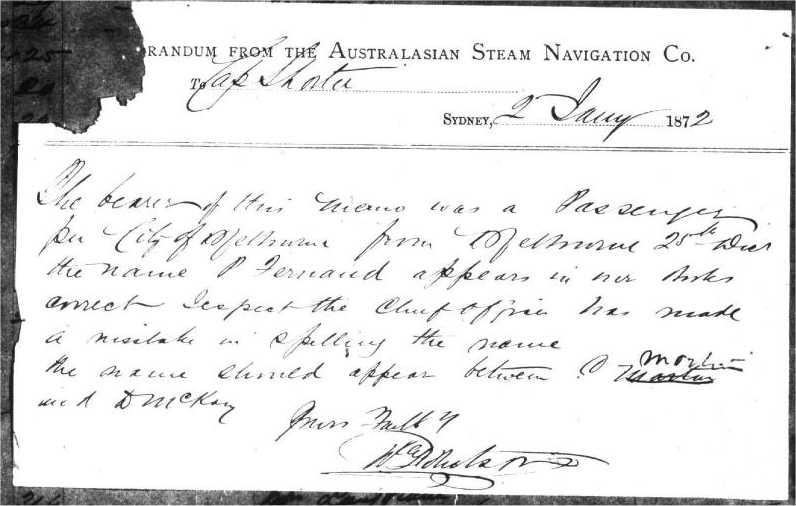 ORANDUM FROM THE AUSTRALASIAN STEAM NAVIGATION CO.
To Cap Shorter
SYDNEY, 2 Jany 1872
The bearer of this memo was a Passenger
per City of Melbourne from Melbourne 25th Dec
the name P Fernand appears in our Books
correct I expect the Chief Officer has made
a mistake in spelling the name
the name should appear between
and D McKay
Yours Faithy